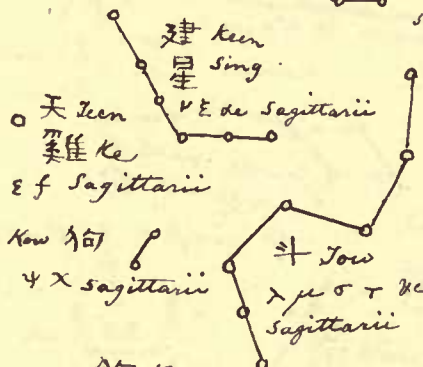 建 Keen
星 Sing
ν ξ &c Sagittarii
天 Teen
雞 Ke
ε f Sagittarii
Kow 狗
ψ χ Sagittarii
斗 Tow
λ μ σ τ &c
Sagittarii